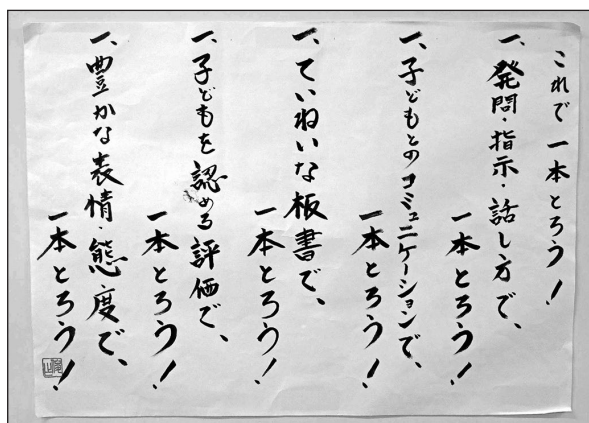 これで一本とろう！
一、発問・指示・話し方で、
一本とろう！
一、子どもとのコミュニケーションで、
一本とろう！
一、ていねいな板書で、
一本とろう！
一、子どもを認める評価で、
一本とろう！
一、豊かな表情・態度で、
一本とろう！